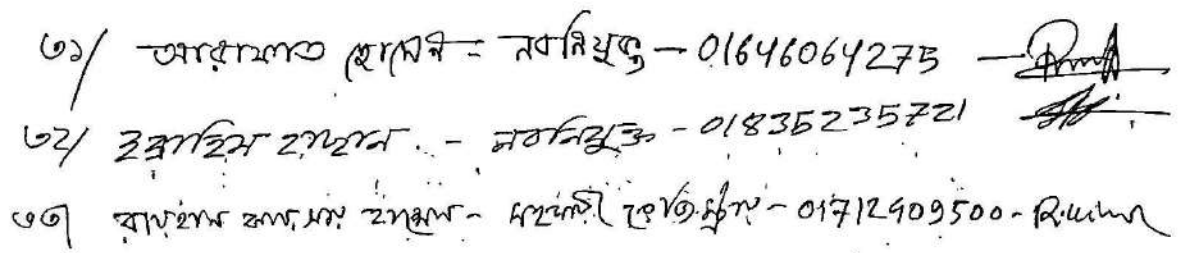 ৩১/ আরাফাত হোসেন = নবনিযুক্ত - 01646064275
৩২/ ইব্রাহিম হাসান - নবনিযুক্ত - 01835235721
৩৩/ রায়হান - সহকারী রেজিস্ট্রার - 01712909500